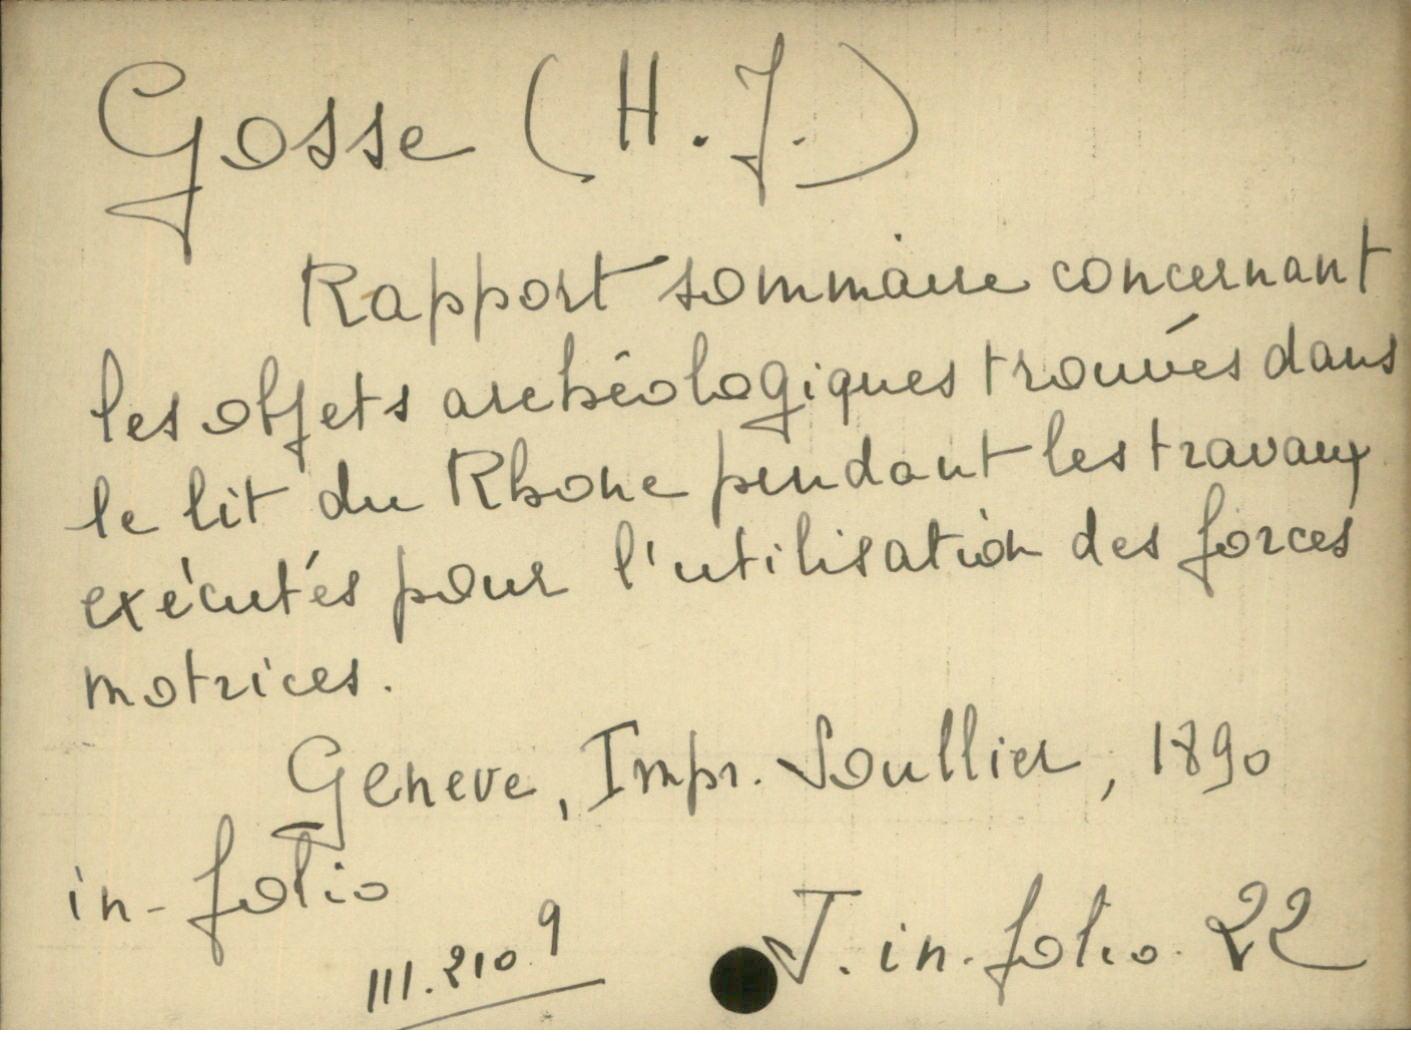 Gosse (H. J.)
Rapport sommaire concernant
les objets archéologiques trouvés dans
le lit du Rhone pendant les travaux
exécutés pour l'utilisation des forces
motrices.
Geneve, Impr. Soullier, 1890
in-folio
III. 210 9
J. in-folio. 22